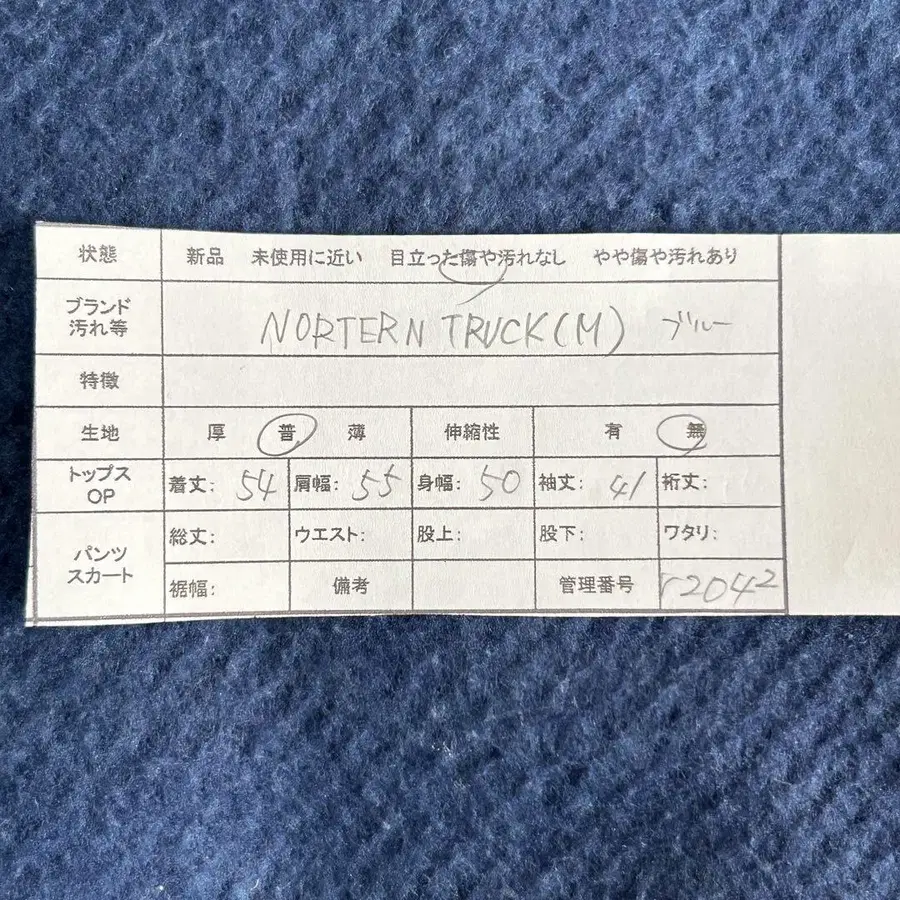 状態 新品 未使用に近い 目立った傷や汚れなし やや傷や汚れあり
ブランド
汚れ等
NORTERN TRUCK(M) ブルー
特徴
生地 厚 普 薄 伸縮性 有 無
トップス
OP
着丈: 54 肩幅: 55 身幅: 50 袖丈: 41 裄丈:
パンツ
スカート
総丈: ウエスト: 股上: 股下: ワタリ:
裾幅: 備考 管理番号 r2042